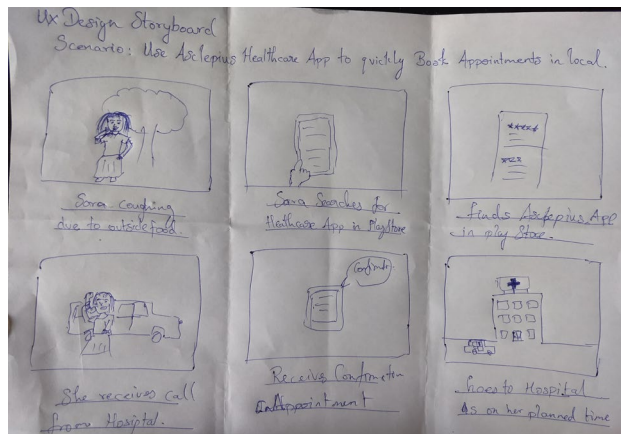 Ux Design Storyboard
Scenario: Use Asclepius Healthcare App to quickly Book Appointments in local.
Sara coughing
due to outside food.
Sara Searches for
Healthcare App in PlayStore
finds Asclepius App
in play Store.
Confirmed
She receives call
from Hosiptal.
Receive Confirmation
Appointment
Goes to Hospital
As on her planned time